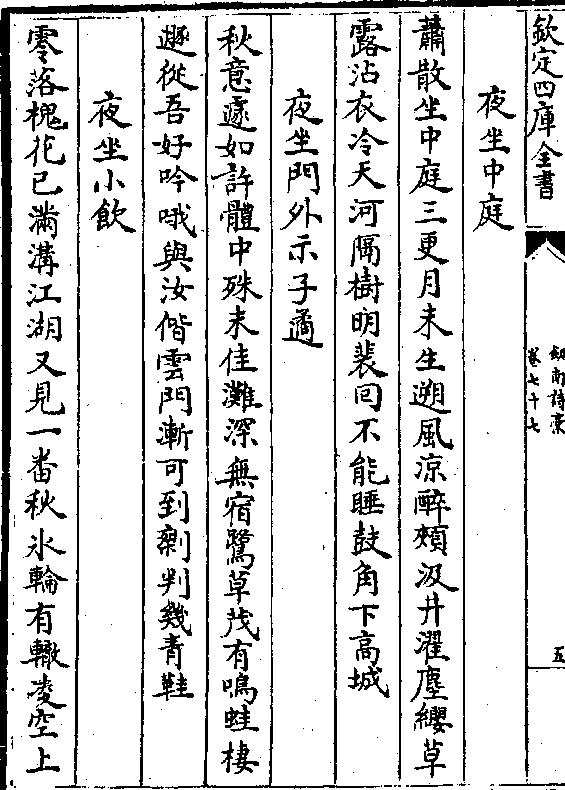 欽定四庫全書
劍南詩稾
卷七十七
五
夜坐中庭
蕭散坐中庭三更月未生遡風涼醉頰汲井濯塵纓草
露沾衣冷天河隔樹明裴囘不能睡鼓角下高城
夜坐門外示子遹
秋意遽如許體中殊未佳灘深無宿鷺草茂有鳴蛙棲
遯從吾好吟哦與汝偕雲門漸可到剰判幾青鞋
夜坐小飲
零落槐花已滿溝江湖又見一番秋氷輪有轍凌空上